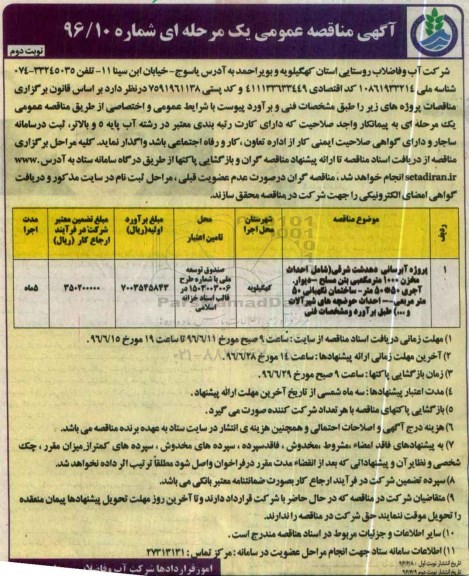 آگهی مناقصه عمومی یک مرحله ای شماره ۹۶/۱۰
نوبت دوم
شرکت آب وفاضلاب روستایی استان کهگیلویه و بویراحمد به آدرس یاسوج - خیابان ابن سینا ۱۱- تلفن ۳۳۲۴۵۰۳۵-۰۷۴
شناسه ملی ۱۰۸۶۱۹۳۳۲۱۴ کد اقتصادی ۴۱۱۱۳۳۶۳۳۴۴۹ و کد پستی ۷۵۹۱۹۶۱۱۳۸ درنظر دارد بر اساس قانون برگزاری
مناقصات پروژه های زیر را طبق مشخصات فنی و برآورد پیوست با شرایط عمومی و اختصاصی از طریق مناقصه عمومی
یک مرحله ای به پیمانکار واجد صلاحیت که دارای کارت رتبه بندی معتبر در رشته آب پایه ۵ و بالاتر، ثبت درسامانه
ساجار و دارای گواهی صلاحیت ایمنی کار از اداره تعاون ، کار و رفاه اجتماعی باشد واگذار نماید. کلیه مراحل برگزاری
مناقصه از دریافت اسناد مناقصه تا ارائه پیشنهاد مناقصه گران و بازگشایی پاکتها از طریق درگاه سامانه ستاد به آدرس www.
setadiran.ir انجام خواهد شد ، مناقصه گران درصورت عدم عضویت قبلی ، مراحل ثبت نام در سایت مذکور و دریافت
گواهی امضای الکترونیکی را جهت شرکت در مناقصه محقق سازند.
ردیف | موضوع مناقصه | شهرستان محل اجرا | محل تامین اعتبار | مبلغ برآورد اولیه(ریال) | مبلغ تضمین معتبر شرکت در فرآیند ارجاع کار (ریال) | مدت اجرا
۱ | پروژه آبرسانی دهدشت شرقی(شامل احداث مخزن ۱۰۰۰ مترمکعبی بتن مسلح –دیوار آجری ۵۰*۵۰ متر- ساختمان نگهبانی ۵۰ متر مربعی-- احداث حوضچه های شیرآلات و ...) طبق برآورد ومشخصات فنی | کهگیلویه | صندوق توسعه ملی با شماره طرح ۱۵۰۳۰۰۳۰۰۶ در قالب اسناد خزانه اسلامی | ۷۰۰۳۵۳۵۸۴۳ | ۳۵۰۲۰۰۰۰۰ | ۵ماه
۱) مهلت زمانی دریافت اسناد مناقصه از سایت : ساعت ۹ صبح مورخ ۹۶/۶/۱۱ تا ساعت ۱۹ مورخ ۹۶/۶/۱۵ .
۲) آخرین مهلت زمانی ارائه پیشنهادها : ساعت ۱۴ مورخ ۹۶/۶/۲۸
۳) زمان بازگشایی پاکتها : ساعت ۹ صبح مورخ ۹۶/۶/۲۹
۴) مدت اعتبار پیشنهادها : سه ماه شمسی از تاریخ آخرین مهلت ارائه پیشنهاد .
۵) بازگشایی پاکتهای مناقصه با هرتعداد شرکت کننده صورت می گیرد .
۶) هزینه درج آگهی و اصلاحات احتمالی و همچنین هزینه ی انتشار در سایت ستاد به عهده برنده مناقصه می باشد.
۷) به پیشنهادهای فاقد امضاء ،مشروط ،مخدوش ، فاقدسپرده ، سپرده های مخدوش ، سپرده های کمتراز میزان مقرر ، چک
شخصی و نظایرآن و پیشنهاداتی که بعد از انقضاء مدت مقرر درفراخوان واصل شود مطلقاً ترتیب اثر داده نخواهد شد.
۸) سپرده تضمین شرکت در فرآیند ارجاع کار بصورت ضمانتنامه معتبر بانکی می باشد.
۹) متقاضیان شرکت در مناقصه که در حال حاضر با شرکت قرارداد دارند و تا آخرین روز مهلت تحویل پیشنهادها پیمان منعقده
را تحویل موقت ننمایند حق شرکت در مناقصه را ندارند.
۱۰) سایر اطلاعات و جزئیات مربوط در اسناد مناقصه مندرج است .
۱۱) اطلاعات سامانه ستاد جهت انجام مراحل عضویت در سامانه : مرکز تماس : ۲۷۳۱۳۱۳۱
تاریخ انتشار نوبت اول : ۹۶/۶/۸
تاریخ انتشار نوبت دوم : ۹۶/۶/۹
امور قراردادها شرکت آب وفاضلاب